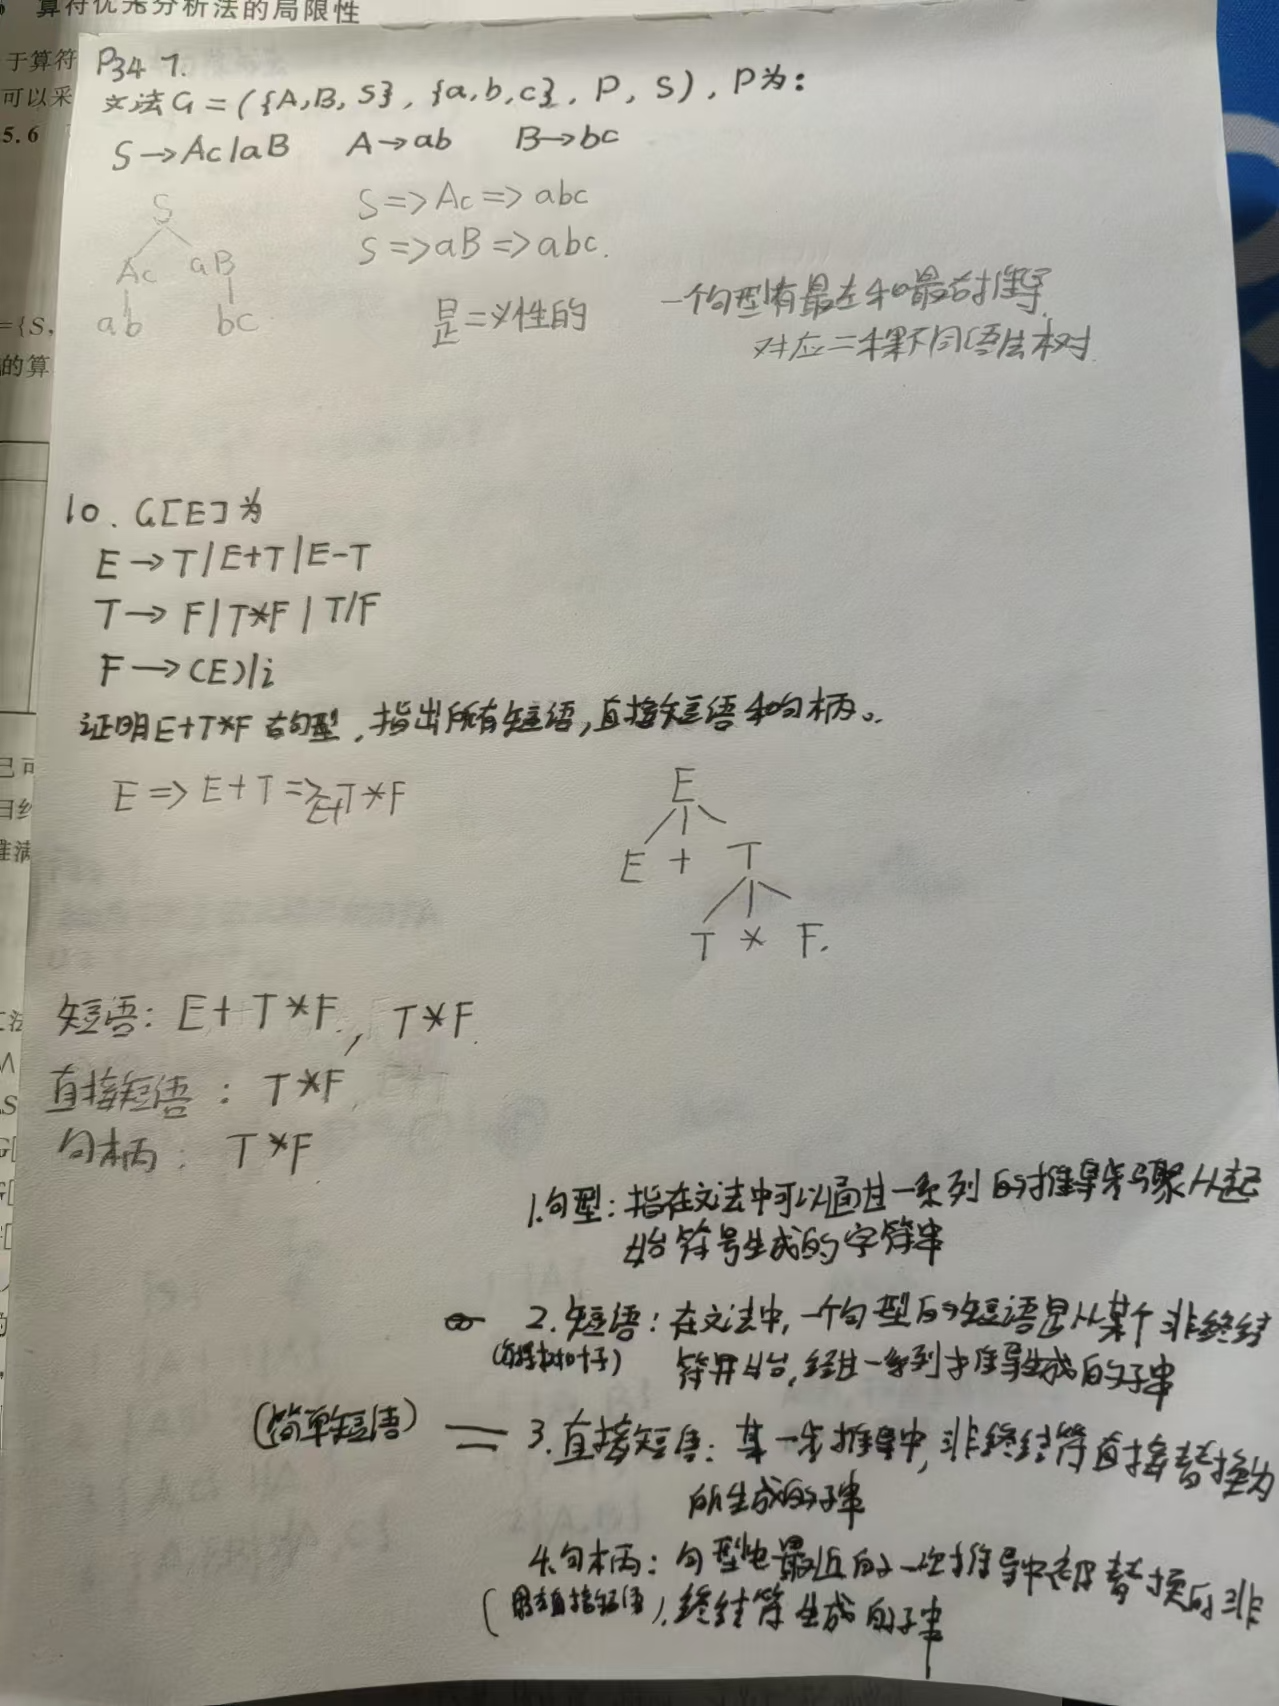 算符优先分析法的局限性
于算符
可以采
5.6
P34 7.
文法G=({A,B,S},{a,b,c},P,S),P为:
S→Ac|aB A→ab B→bc
S
Ac aB
ab bc
S=>Ac=>abc
S=>aB=>abc.
是二义性的
一个句型有最左和最右推导
对应二棵不同语法树
={S,
的算
10. G[E]为
E→T|E+T|E-T
T→F|T*F|T/F
F→(E)|i
证明E+T*F 句型,指出所有短语,直接短语和句柄。
E=>E+T=>E+T*F
E
E + T
T * F.
短语: E+T*F, T*F
直接短语: T*F
句柄: T*F
1.句型:指在文法中可以通过一系列的推导步骤从起
始符号生成的字符串
2.短语:在文法中,一个句型的短语是从某个非终结
符开始,经过一系列推导生成的子串
(简单短语) = 3.直接短语:某一步推导中,非终结符直接替换为
所生成的子串
4.句柄:句型中最近的一次推导中被替换的非
终结符生成的子串